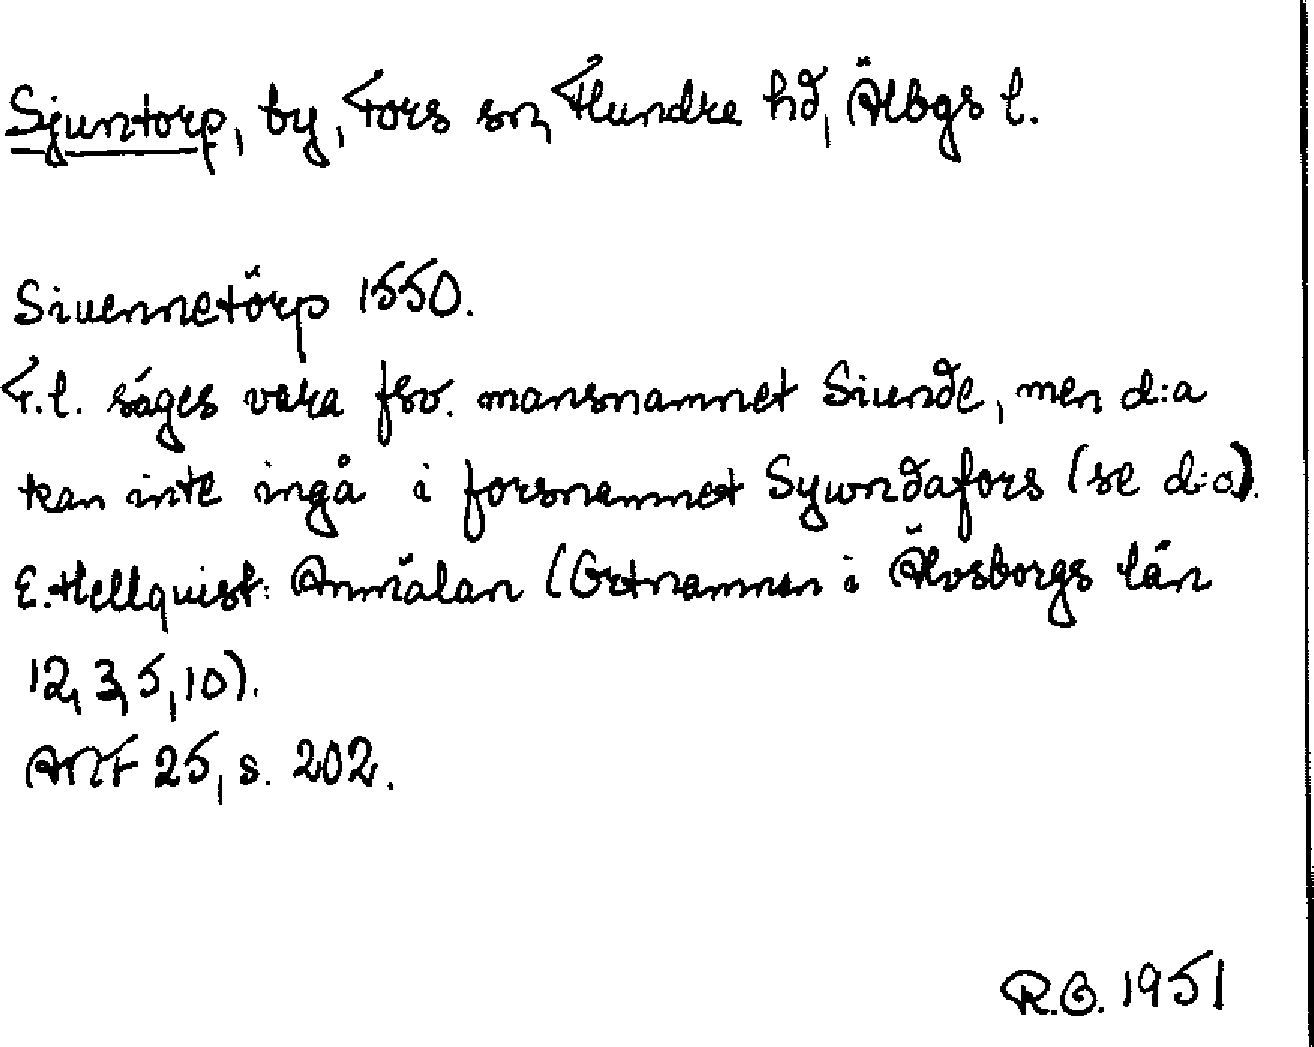 Sjuntorp, by, Fors sn, Flundre hd, Älvbgs l.
Siuennetörp 1550.
F.l. säges vara fsv. mansnamnet Siunde, men d:a
kan inte ingå i forsnamnet Sywndafors (se d:o).
E. Hellquist: Anmälan (Ortnamnen i Älvsborgs län
12, 3, 5, 10).
ANF 25, s. 202.
R.O. 1951